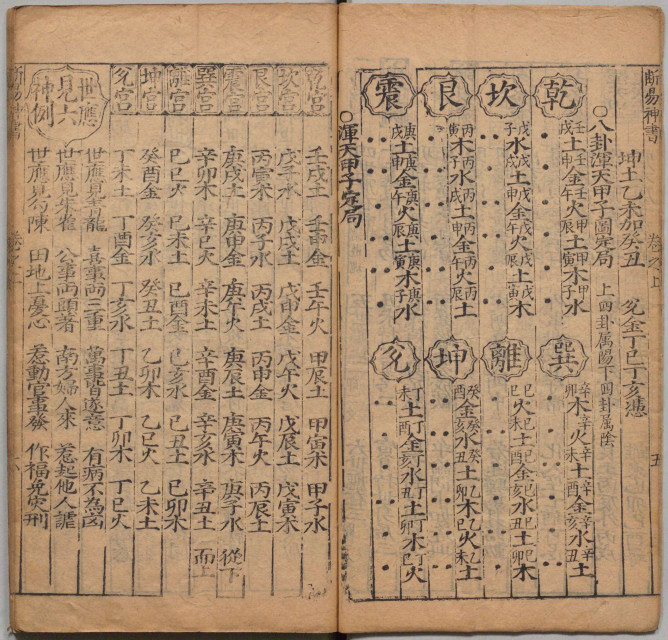 斷易神書 卷之上 五
坤土乙未加癸丑 兌金丁巳丁亥憑
○八卦渾天甲子圖定局 上四卦属陽下四卦属陰
乾 壬戌土 壬申金 壬午火 甲辰土 甲寅木 甲子水
巽 辛卯木 辛巳火 辛未土 辛酉金 辛亥水 辛丑土
坎 戊子水 戊戌土 戊申金 戊午火 戊辰土 戊寅木
離 己巳火 己未土 己酉金 己亥水 己丑土 己卯木
艮 丙寅木 丙子水 丙戌土 丙申金 丙午火 丙辰土
坤 癸酉金 癸亥水 癸丑土 乙卯木 乙巳火 乙未土
震 庚戌土 庚申金 庚午火 庚辰土 庚寅木 庚子水
兌 丁未土 丁酉金 丁亥水 丁丑土 丁卯木 丁巳火
○渾天甲子定局
乾宮 壬戌土 壬申金 壬午火 甲辰土 甲寅木 甲子水
坎宮 戊子水 戊戌土 戊申金 戊午火 戊辰土 戊寅木
艮宮 丙寅木 丙子水 丙戌土 丙申金 丙午火 丙辰土
震宮 庚戌土 庚申金 庚午火 庚辰土 庚寅木 庚子水 從下
巽宮 辛卯木 辛巳火 辛未土 辛酉金 辛亥水 辛丑土 而上
離宮 己巳火 己未土 己酉金 己亥水 己丑土 己卯木
坤宮 癸酉金 癸亥水 癸丑土 乙卯木 乙巳火 乙未土
兌宮 丁未土 丁酉金 丁亥水 丁丑土 丁卯木 丁巳火
世應見六神例
世應見青龍 喜事両三重 萬事皆遂意 有病不為凶
世應見朱雀 公事両頭著 南方婦人來 惹起他人謔
世應見勾陳 田地上憂心 惹動官事發 作福免災刑
斷易神書 卷之上